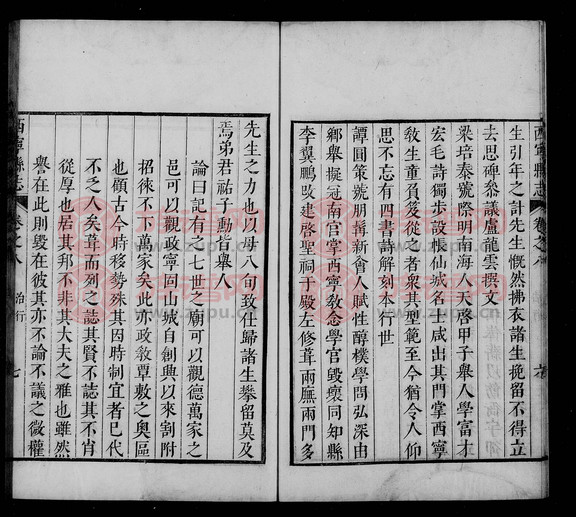 生引年之計先生慨然拂衣諸生挽留不得立
去思碑叅議盧龍雲撰文
梁培泰號際明南海人天啓甲子舉人學富才
宏毛詩獨步設帳仙城名士咸出其門掌西寧
敎生童負笈從之者衆其型範至今猶令人仰
思不忘有四書詩解刻本行世
譚圓策號朋搆新會人賦性醇樸學問弘深由
鄉舉擬冠南宮掌西寧敎念學官毀壞同知縣
李翼鵬改建啓聖祠于殿左修葺兩廡兩門多
西寧縣志
卷之八
治行
七
先生之力也以母八旬致仕歸諸生攀留莫及
焉弟君祐子動皆舉人
論曰記有之七世之廟可以觀德萬家之
邑可以觀政寧固山城自創興以來割附
招徠不下萬家矣此亦政敎覃敷之奧區
也顧古今時移勢殊其因時制宜者已代
不乏人矣葺而列之誌其賢不誌其不肖
從厚也居其邦不非其大夫之雅也雖然
譽在此則毀在彼其亦不論不議之微權